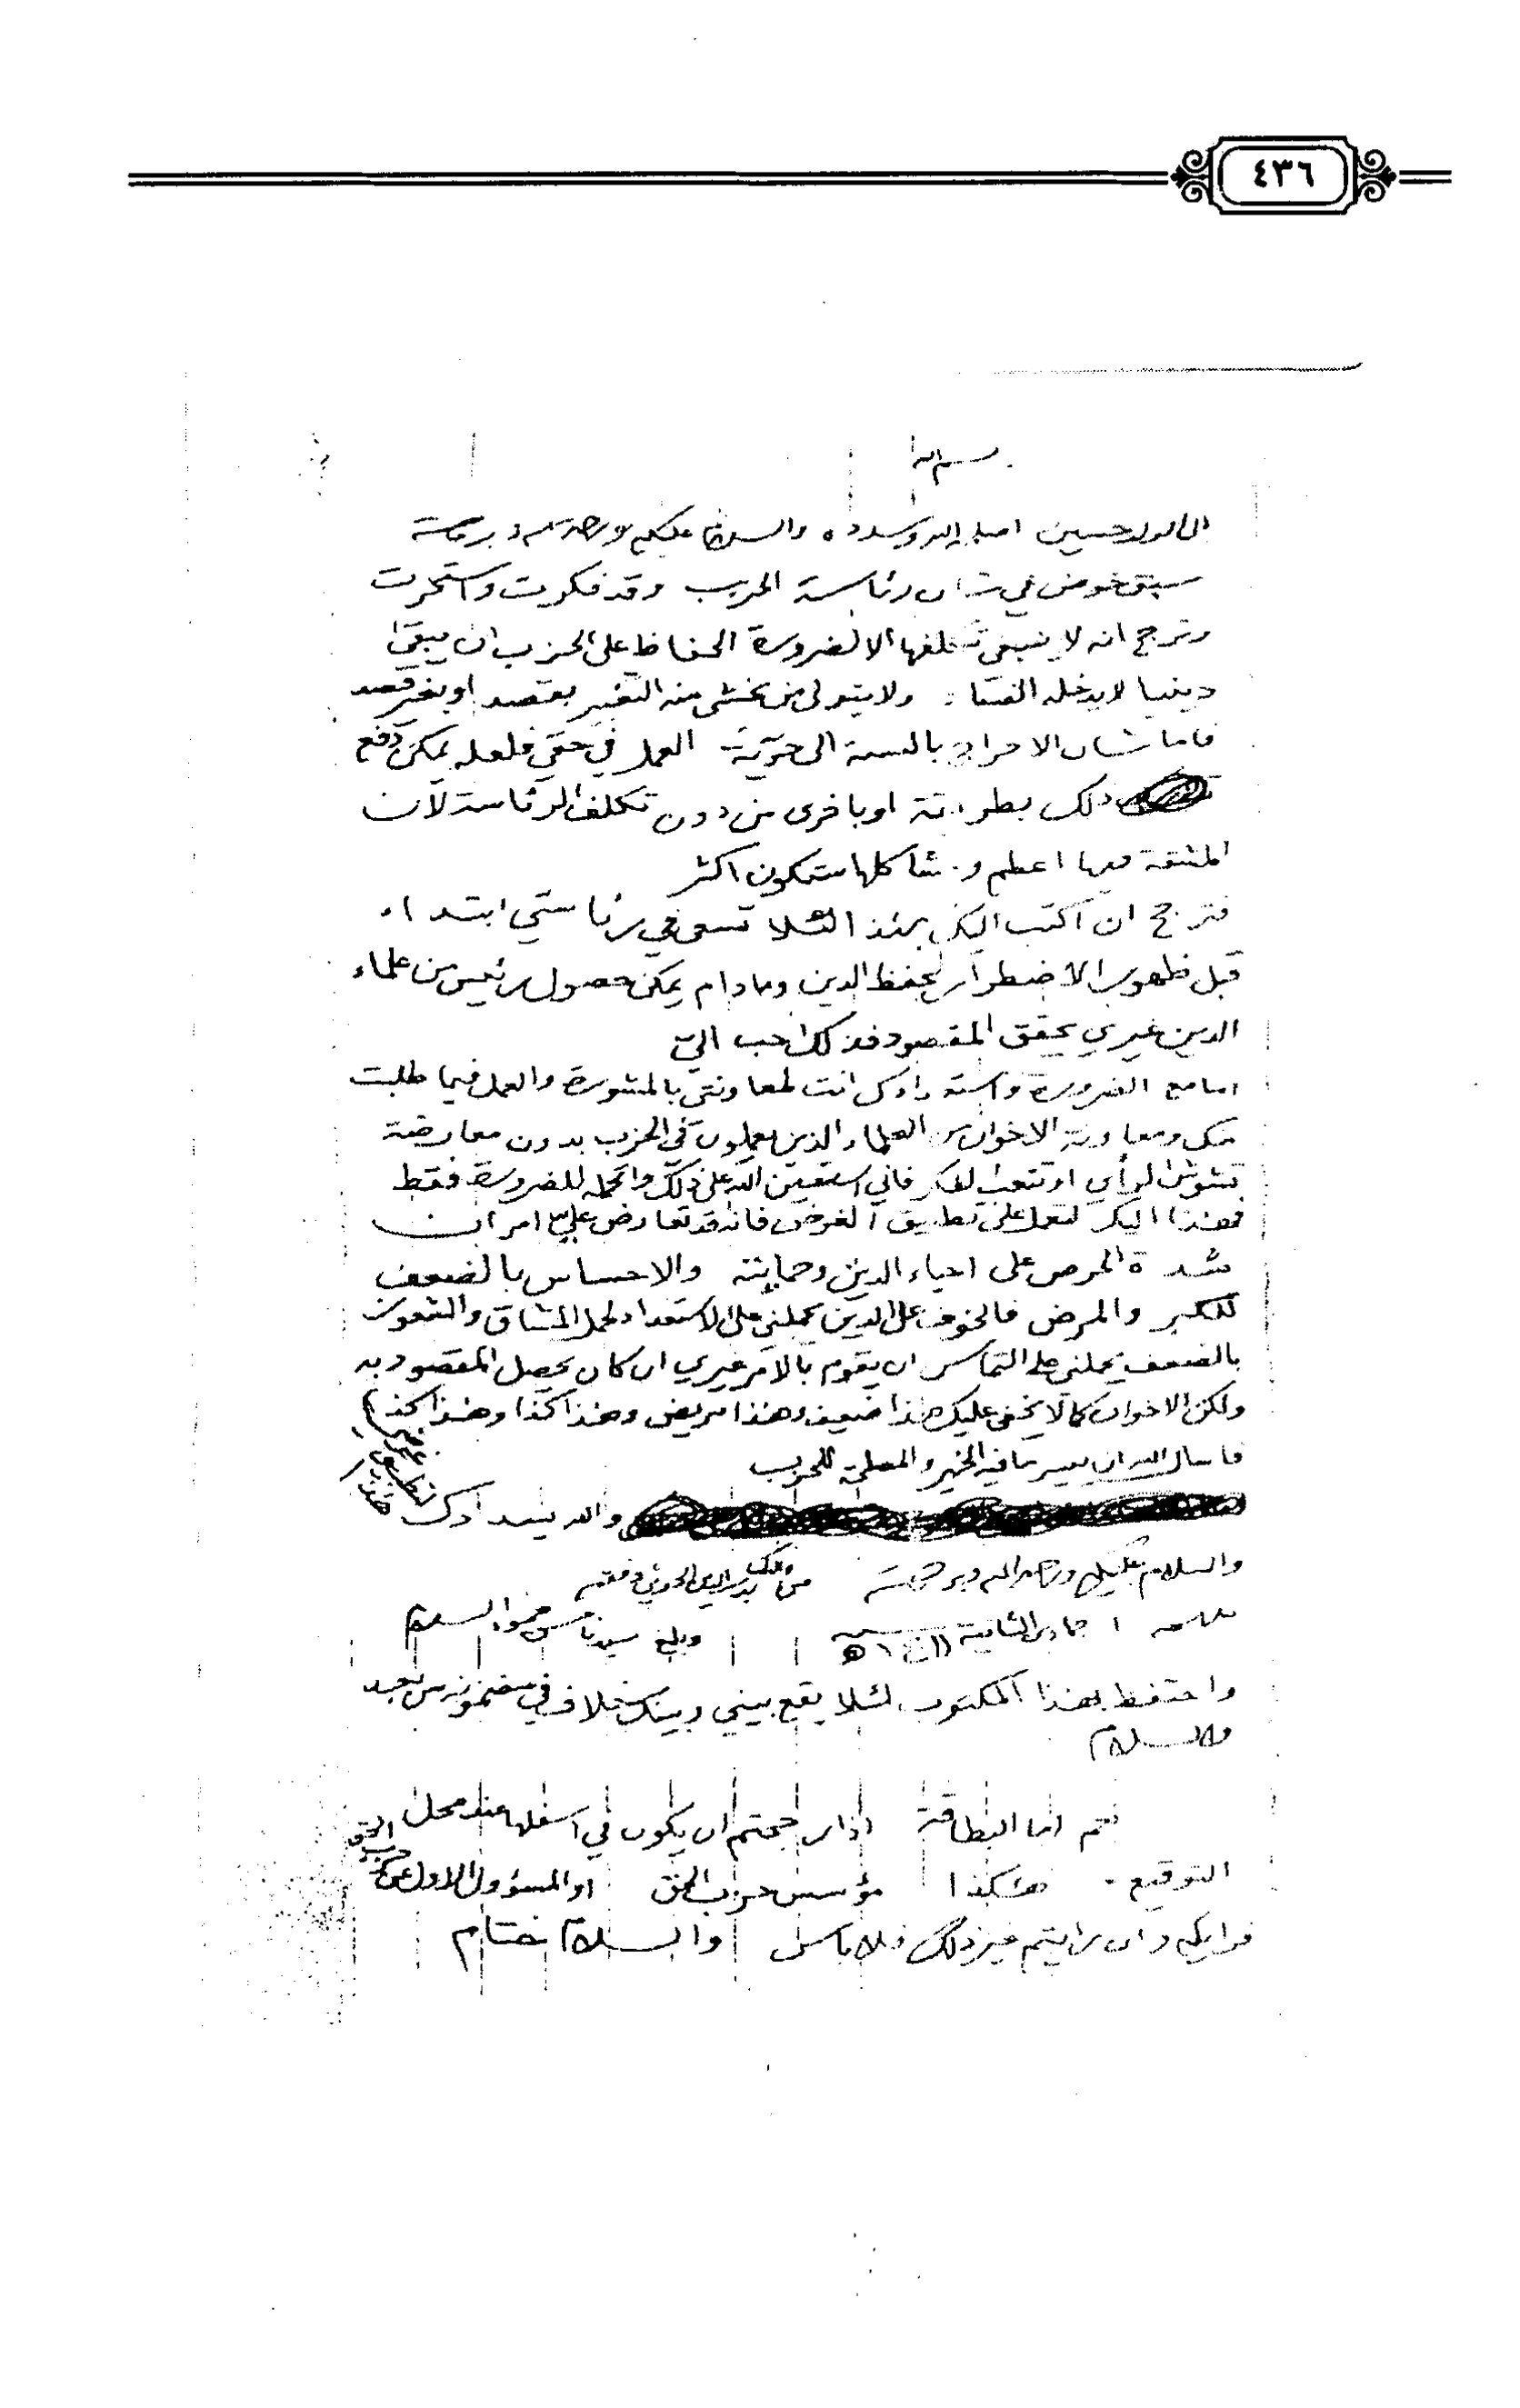 ٤٣٦
بسم الله
الى الولد حسين اصلحه الله وسدده والسلام عليكم ورحمة الله وبركاته
سبق خوض في شان رئاسة الحزب وقد فكرت واستخرت
وترجح انه لا ينبغي تكلفها الا لضرورة الحفاظ على الحزب ان يبقى
دينيا لا يدخله الفساد ولا يتولى من يخشى منه التغيير بقصد او بغير قصد
فاما شان الاحراج بالنسبة الى حرية العمل في حقي فلعله يمكن دفع
ذلك بطريقة او باخرى من دون تكلف الرئاسة لان
المشقة فيها اعظم ومشاكلها ستكون اكثر
فترجح ان اكتب اليك بهذا لئلا تسعى في رئاستي ابتداء
قبل ظهور الاضطرار لحفظ الدين ومادام يمكن حصول رئيس من علماء
الدين غيري يحقق المقصود فذلك احب الي
اما مع الضرورة واستعدادك انت لمعاونتي بالمشورة والعمل فيما طلبت
منك ومعاونة الاخوان من العلماء الذين يعملون في الحزب بدون معارضة
تشوش الرأي او تتعب الفكر فاني استعين الله على ذلك واتحمله للضرورة فقط
فهذا اليك لتعمل على تطبيق الغرض فانه قد تعارض علي امران
شدة الحرص على احياء الدين وحمايته والاحساس بالضعف
للكبر والمرض فالخوف على الدين يحملني على الاستعداد لحمل المشاق والشعور
بالضعف يحملني على التماس ان يقوم بالامر غيري ان كان يحصل المقصود به
ولكن الاخوان كما لا يخفى عليك هذا ضعيف وهذا مريض وهذا كذا وهذا كذا
فاسال الله ان ييسر ما فيه الخير والمصلحة للحزب
والله يسددك لتطبيق غرضي هذا
والسلام عليك ورحمة الله وبركاته من والدك بدرالدين الحوثي وفقه الله
جمادى الثانية وبلغ سيدنا السلام
واحتفظ بهذا المكتوب لئلا يقع بيني وبينك خلاف في مضمونه من بعد
والسلام
نعم اما البطاقة اذا رجحتم ان يكون في اسفلها عند محل
التوقيع هكذا مؤسس حزب الحق او المسؤول الاول عن حزب الحق
فرايكم وان رايتم غير ذلك فلا باس والسلام ختام